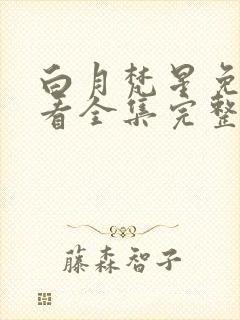 白月梵星免
看全集完整
藤森智子